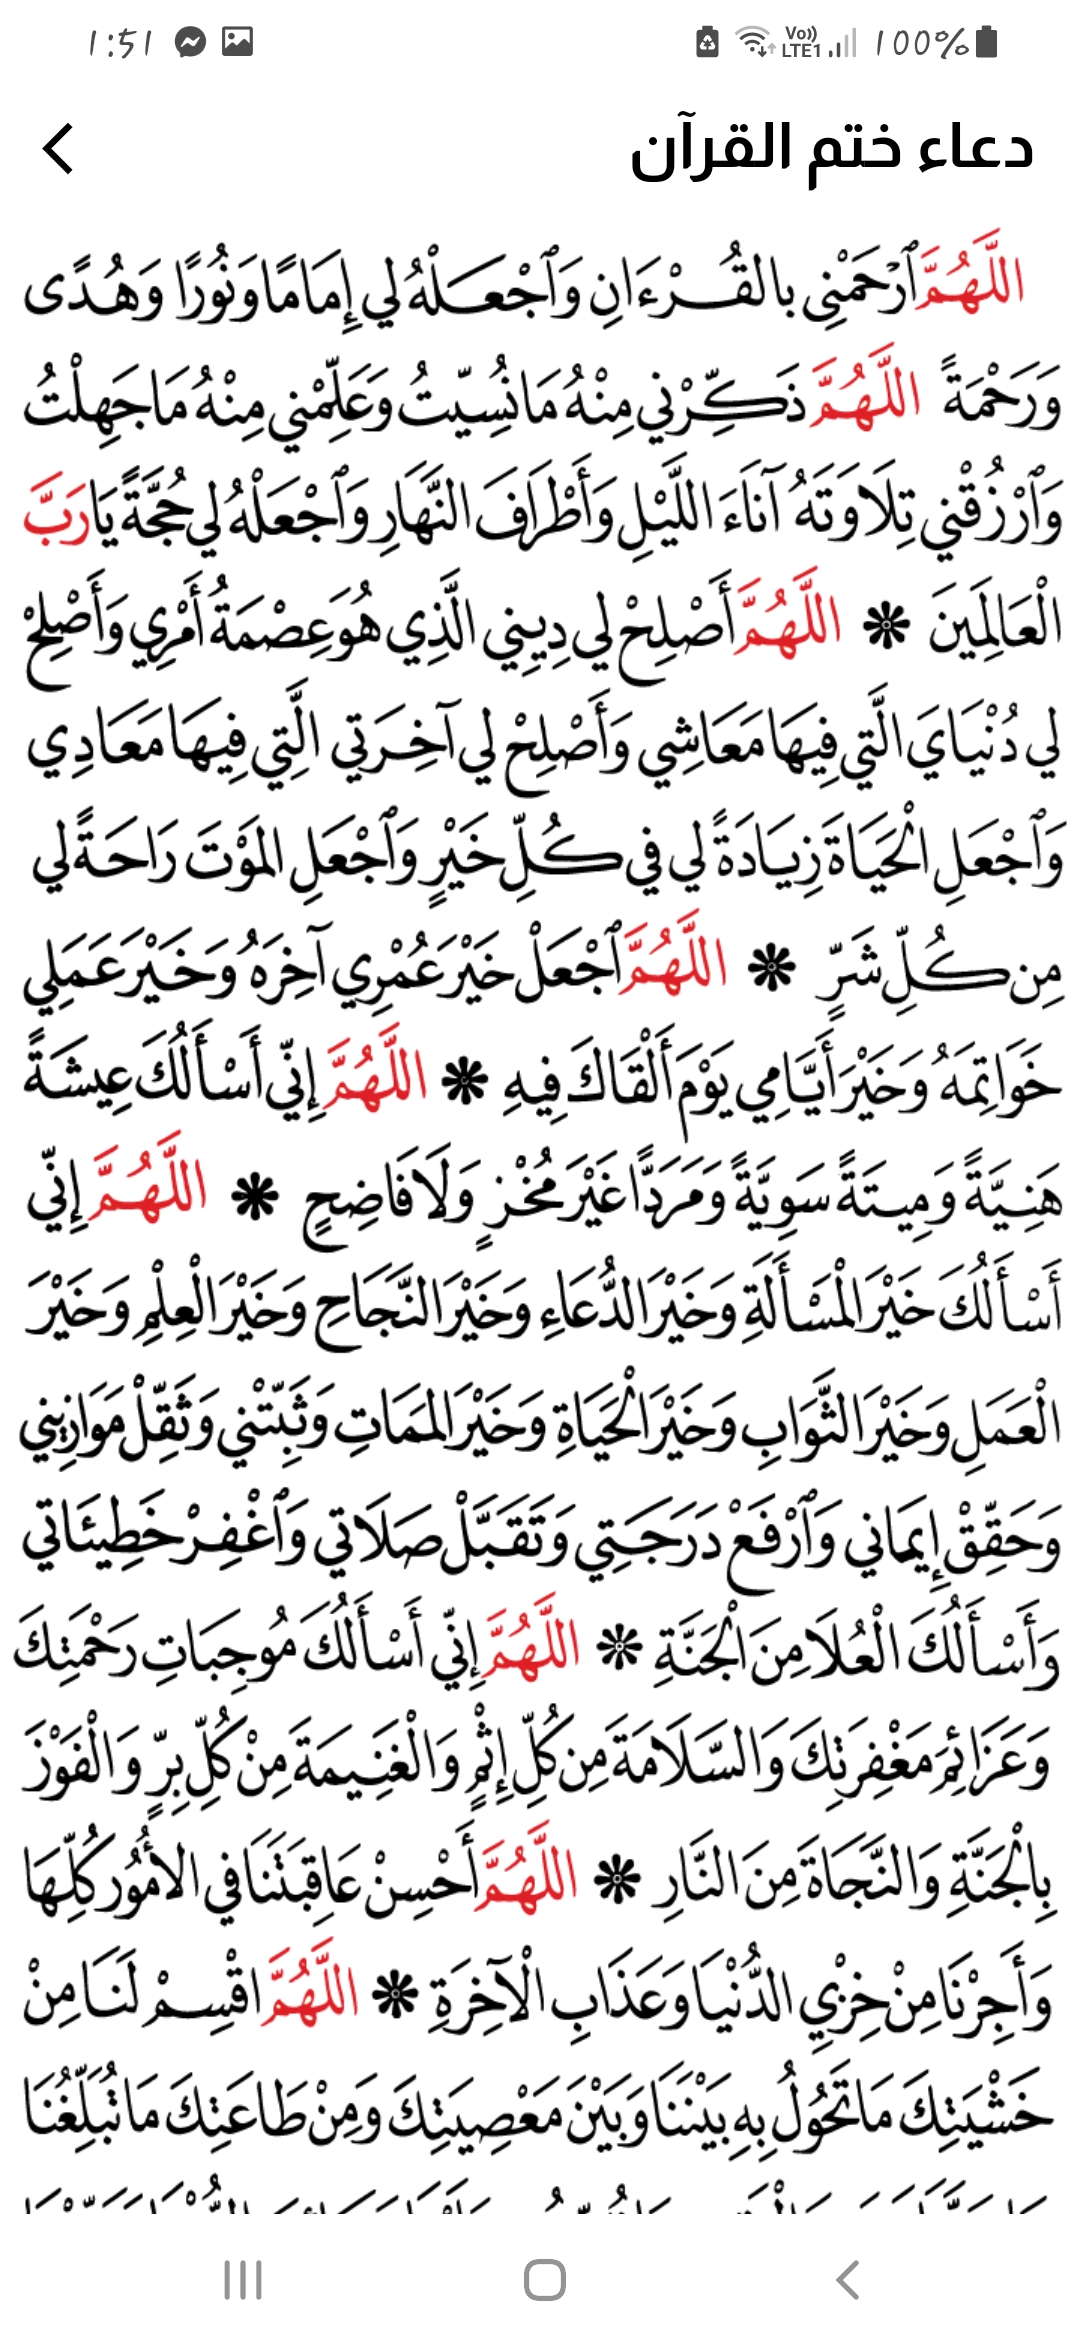 1:51 Vo)) LTE1 100%
دعاء ختم القرآن
اللَّهُمَّ ٱرْحَمْنِي بالقُرْءَانِ وَٱجْعَلْهُ لي إِمَامًا وَنُورًا وَهُدًى
وَرَحْمَةً اللَّهُمَّ ذَكِّرْني مِنْهُ مَا نُسِّيتُ وَعَلِّمْني مِنْهُ مَا جَهِلْتُ
وَٱرْزُقْني تِلَاوَتَهُ آنَاءَ اللَّيْلِ وَأَطْرَافَ النَّهَارِ وَٱجْعَلْهُ لي حُجَّةً يَا رَبَّ
الْعَالَمِينَ ❋ اللَّهُمَّ أَصْلِحْ لي دِيِني الَّذِي هُوَ عِصْمَةُ أَمْرِي وَأَصْلِحْ
لي دُنْيَايَ الَّتي فِيهَا مَعَاشِي وَأَصْلِحْ لي آخِرَتي الَّتِي فِيهَا مَعَادِي
وَٱجْعَلِ الْحَيَاةَ زِيَادَةً لي في كُلِّ خَيْرٍ وَٱجْعَلِ المَوْتَ رَاحَةً لي
مِن كُلِّ شَرٍّ ❋ اللَّهُمَّ ٱجْعَلْ خَيْرَ عُمْرِي آخِرَهُ وَخَيْرَ عَمَلِي
خَوَاتِمَهُ وَخَيْرَ أَيَّامِي يَوْمَ أَلْقَاكَ فِيهِ ❋ اللَّهُمَّ إِنّي أَسْأَلُكَ عِيشَةً
هَنِيَّةً وَمِيتَةً سَوِيَّةً وَمَرَدًّا غَيْرَ مُخْزٍ وَلَا فَاضِحٍ ❋ اللَّهُمَّ إِنّي
أَسْأَلُكَ خَيْرَ الْمَسْأَلَةِ وَخَيْرَ الدُّعَاءِ وَخَيْرَ النَّجَاحِ وَخَيْرَ الْعِلْمِ وَخَيْرَ
الْعَمَلِ وَخَيْرَ الثَّوَابِ وَخَيْرَ الْحَيَاةِ وَخَيْرَ المَمَاتِ وَثَبِّتْني وَثَقِّلْ مَوَازِيني
وَحَقِّقْ إِيمَاني وَٱرْفَعْ دَرَجَتِي وَتَقَبَّلْ صَلَاتي وَٱغْفِرْ خَطِيئَاتي
وَأَسْأَلُكَ الْعُلَا مِنَ الْجَنَّةِ ❋ اللَّهُمَّ إِنّي أَسْأَلُكَ مُوجِبَاتِ رَحْمَتِكَ
وَعَزَائِمَ مَغْفِرَتِكَ وَالسَّلَامَةَ مِن كُلِّ إِثْمٍ وَالْغَنِيمَةَ مِنْ كُلِّ بِرٍّ وَالْفَوْزَ
بِالْجَنَّةِ وَالنَّجَاةَ مِنَ النَّارِ ❋ اللَّهُمَّ أَحْسِنْ عَاقِبَتَنَا في الأُمُورِ كُلِّهَا
وَأَجِرْنَا مِنْ خِزْيِ الدُّنْيَا وَعَذَابِ الْآخِرَةِ ❋ اللَّهُمَّ اقْسِمْ لَنَا مِنْ
خَشْيَتِكَ مَا تَحُولُ بِهِ بَيْنَنَا وَبَيْنَ مَعْصِيَتِكَ وَمِنْ طَاعَتِكَ مَا تُبَلِّغُنَا